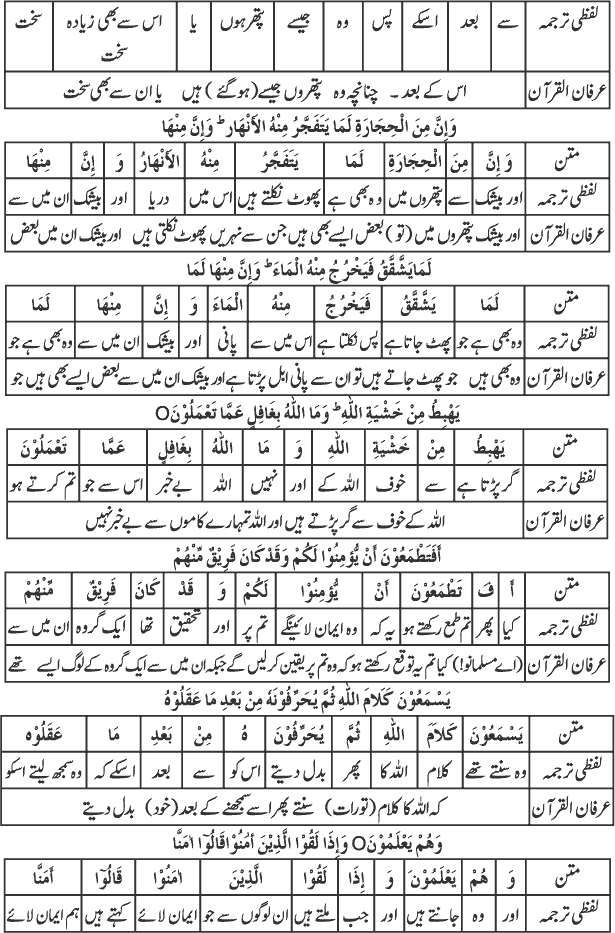 لفظی ترجمہ سے بعد اسکے پس وہ جیسے پتھر ہوں یا اس سے بھی زیادہ سخت سخت
عرفان القرآن اس کے بعد ۔ چنانچہ وہ پتھروں جیسے (ہوگئے) ہیں یا ان سے بھی سخت
وَإِنَّ مِنَ الْحِجَارَةِ لَمَا يَتَفَجَّرُ مِنْهُ الْأَنْهَارُ ؕ وَإِنَّ مِنْهَا
متن وَ إِنَّ مِنَ الْحِجَارَةِ لَمَا يَتَفَجَّرُ مِنْهُ الْأَنْهَارُ وَ إِنَّ مِنْهَا
لفظی ترجمہ اور بیشک سے پتھروں میں وہ بھی ہے پھوٹ نکلتے ہیں اس میں دریا اور بیشک ان میں سے
عرفان القرآن اور بیشک پتھروں میں (تو) بعض ایسے بھی ہیں جن سے نہریں پھوٹ نکلتی ہیں اور بیشک ان میں بعض
لَمَا يَشَّقَّقُ فَيَخْرُجُ مِنْهُ الْمَاءُ ؕ وَإِنَّ مِنْهَا لَمَا
متن لَمَا يَشَّقَّقُ فَيَخْرُجُ مِنْهُ الْمَاءُ وَ إِنَّ مِنْهَا لَمَا
لفظی ترجمہ وہ بھی ہے جو پھٹ جاتا ہے پس نکلتا ہے اس میں سے پانی اور بیشک ان میں سے وہ بھی ہے جو
عرفان القرآن وہ بھی ہیں جو پھٹ جاتے ہیں تو ان سے پانی ابل پڑتا ہے اور بیشک ان میں سے بعض ایسے بھی ہیں جو
يَهْبِطُ مِنْ خَشْيَةِ اللهِ ؕ وَمَا اللهُ بِغَافِلٍ عَمَّا تَعْمَلُوْنَO
متن يَهْبِطُ مِنْ خَشْيَةِ اللهِ وَ مَا اللهُ بِغَافِلٍ عَمَّا تَعْمَلُوْنَ
لفظی ترجمہ گر پڑتا ہے سے خوف اللہ کے اور نہیں اللہ بے خبر اس سے جو تم کرتے ہو
عرفان القرآن اللہ کے خوف سے گر پڑتے ہیں اور اللہ تمہارے کاموں سے بے خبر نہیں
أَفَتَطْمَعُوْنَ أَنْ يُّؤْمِنُوْا لَكُمْ وَقَدْ كَانَ فَرِيْقٌ مِّنْهُمْ
متن أَ فَ تَطْمَعُوْنَ أَنْ يُّؤْمِنُوْا لَكُمْ وَ قَدْ كَانَ فَرِيْقٌ مِّنْهُمْ
لفظی ترجمہ کیا پھر تم طمع رکھتے ہو یہ کہ وہ ایمان لائینگے تم پر اور تحقیق تھا ایک گروہ ان میں سے
عرفان القرآن (اے مسلمانو!) کیا تم یہ توقع رکھتے ہو کہ وہ تم پر یقین کرلیں گے جبکہ ان میں سے ایک گروہ کے لوگ ایسے تھے
يَسْمَعُوْنَ كَلَامَ اللهِ ثُمَّ يُحَرِّفُوْنَهُ مِنْ بَعْدِ مَا عَقَلُوْهُ
متن يَسْمَعُوْنَ كَلَامَ اللهِ ثُمَّ يُحَرِّفُوْنَ هُ مِنْ بَعْدِ مَا عَقَلُوْهُ
لفظی ترجمہ وہ سنتے تھے کلام اللہ کا پھر بدل دیتے اس کو سے بعد اسکے کہ وہ سمجھ لیتے اسکو
عرفان القرآن کہ اللہ کا کلام (تورات) سنتے پھر اسے سمجھنے کے بعد (خود) بدل دیتے
وَهُمْ يَعْلَمُوْنَO وَإِذَا لَقُوْا الَّذِيْنَ اٰمَنُوْا قَالُوْٓا اٰمَنَّا
متن وَ هُمْ يَعْلَمُوْنَ وَ إِذَا لَقُوْا الَّذِيْنَ اٰمَنُوْا قَالُوْٓا اٰمَنَّا
لفظی ترجمہ اور وہ جانتے ہیں اور جب ملتے ہیں ان لوگوں سے جو ایمان لائے کہتے ہیں ہم ایمان لائے